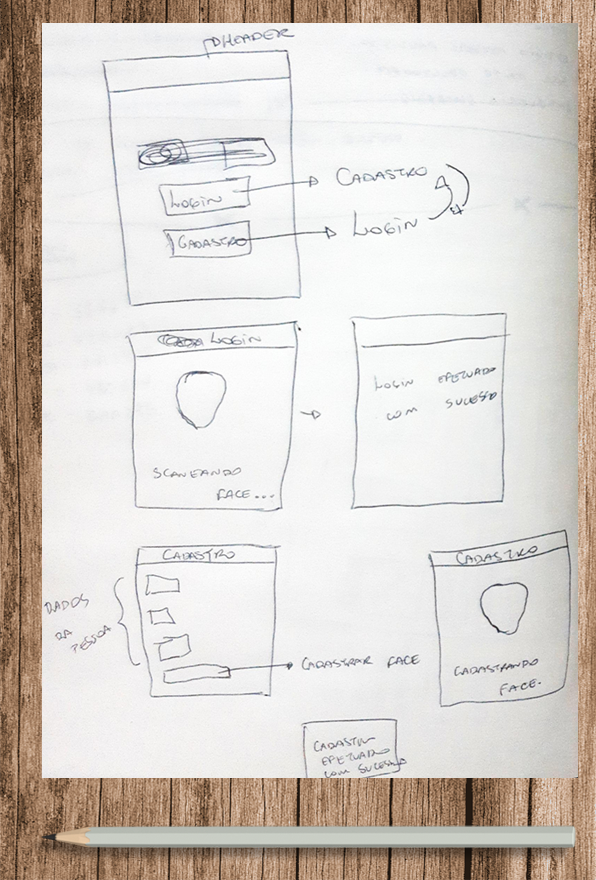 HEADER
LOGIN
CADASTRO
CADASTRO
LOGIN
LOGIN
SCANEANDO
FACE...
LOGIN EFETUADO
COM SUCESSO
CADASTRO
DADOS
DA
PESSOA
CADASTRAR FACE
CADASTRO
CADASTRANDO
FACE.
CADASTRO
EFETUADO
COM SUCESSO